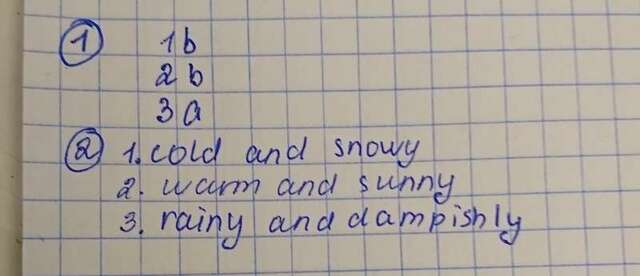 1 1b
2b
3a
2 1. cold and snowy
2. warm and sunny
3. rainy and dampishly